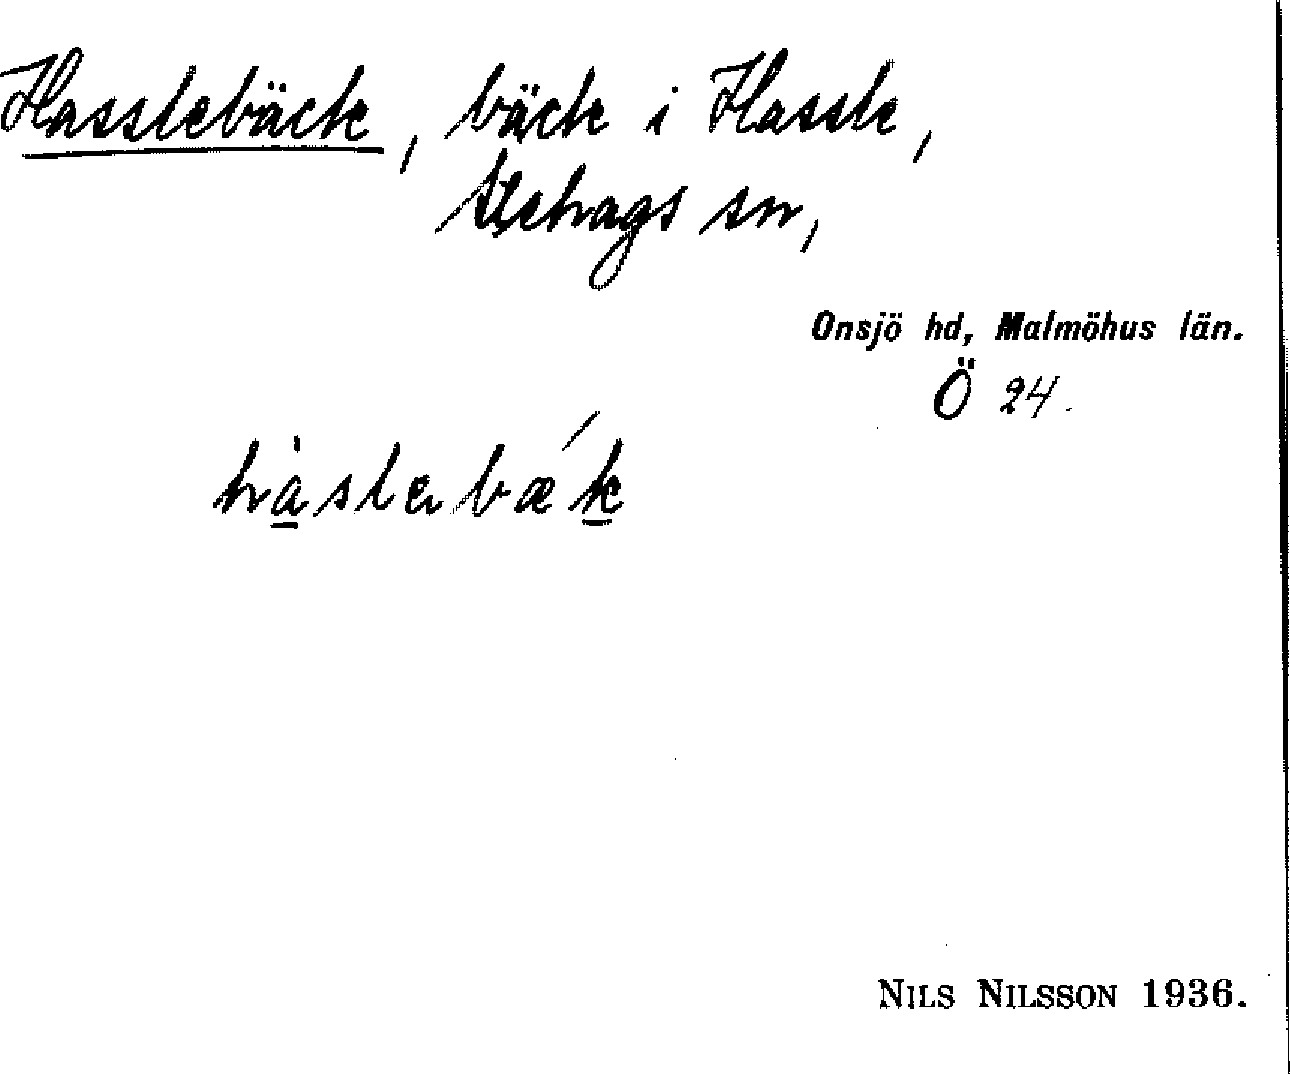 Hasslebäck, bäck i Hassle,
Stehags sn,
Onsjö hd, Malmöhus län.
Ö 24.
hàslebæ´k
NILS NILSSON 1936.